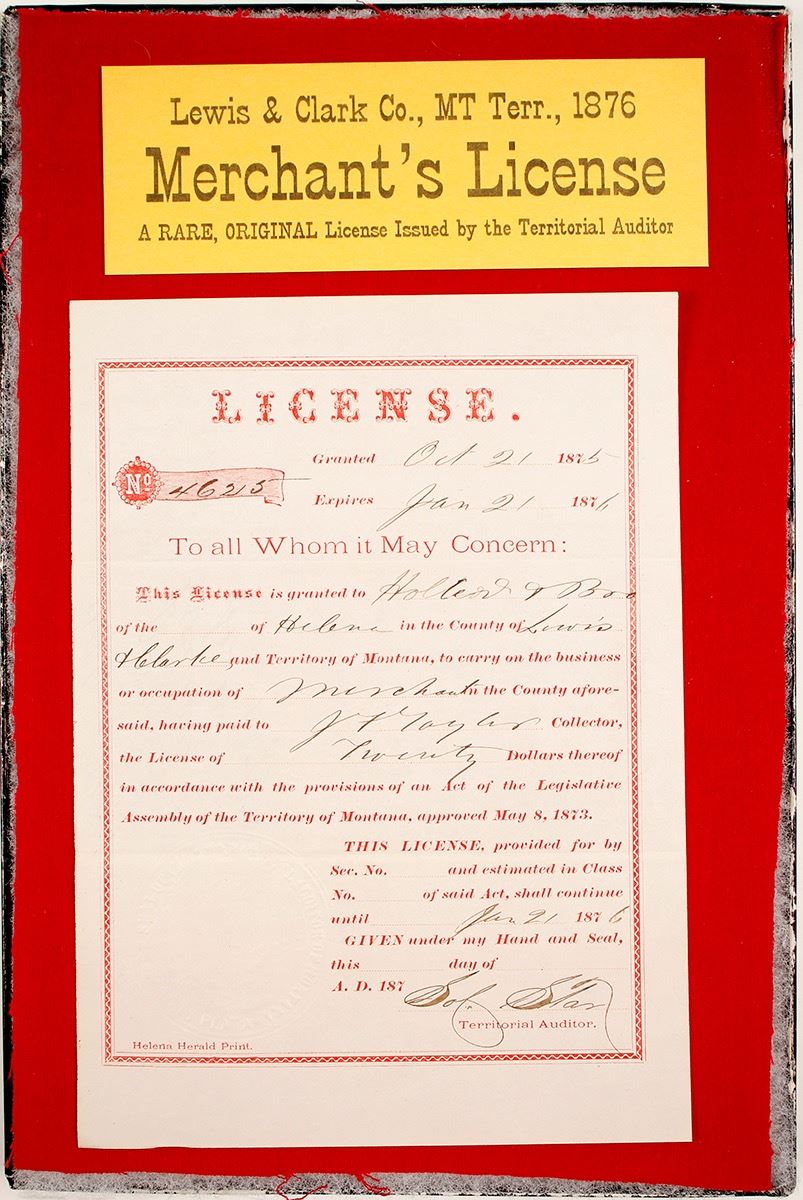 Lewis & Clark Co., MT Terr., 1876
Merchant's License
A RARE, ORIGINAL License Issued by the Territorial Auditor
LICENSE.
Granted Oct 21 1875
No 4625
Expires Jan 21 1876
To all Whom it May Concern:
This License is granted to & Bro
of the of Helena in the County of Lewis
& Clarke and Territory of Montana, to carry on the business
or occupation of Merchant in the County afore-
said, having paid to J F Taylor Collector,
the License of Twenty Dollars thereof
in accordance with the provisions of an Act of the Legislative
Assembly of the Territory of Montana, approved May 8, 1873.
THIS LICENSE, provided for by
Sec. No. and estimated in Class
No. of said Act, shall continue
until Jan 21 1876
GIVEN under my Hand and Seal,
this day of
A. D. 187
Sol. Star
Territorial Auditor.
Helena Herald Print.